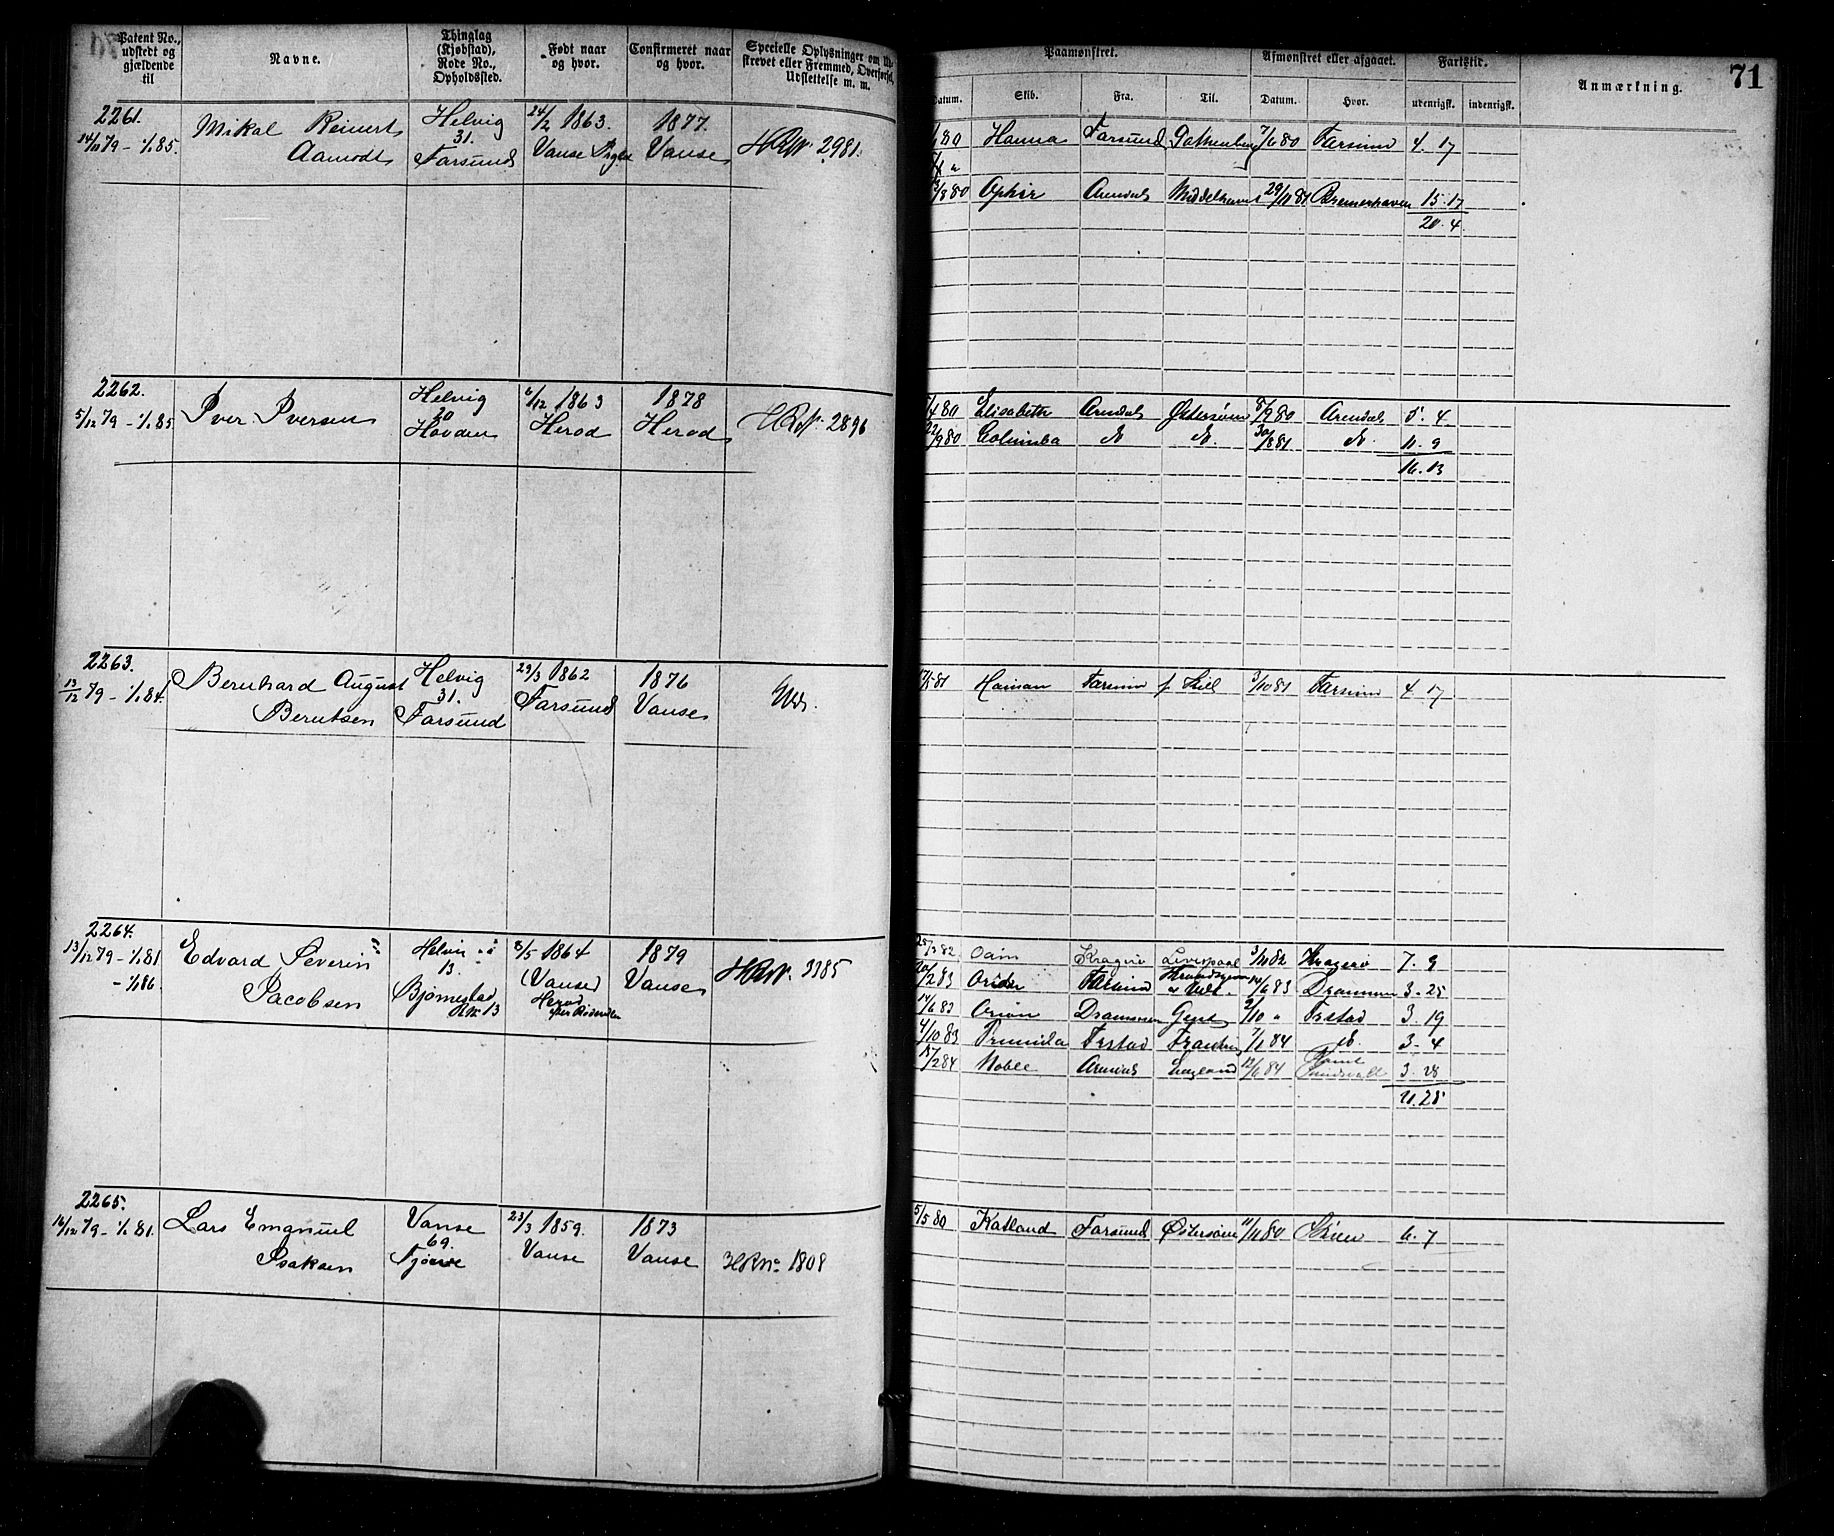 Patent No.,
udstedt og
gjældende
til
Navne.
Thinglag
(Kjøbstad),
Rode No.,
Opholdssted.
Født naar
og hvor.
Confirmeret naar
og hvor.
Specielle Oplysninger om
strevet eller Fremmed, Overførsel,
Udslettelse m. m.
2261.
14/11 79 - 1/1 85.
Mikal Reinert
Aamodt
Helvig
31.
Farsund
24/2 1863.
Vanse
1877.
Vanse
HRNr. 2981.
2262.
5/12 79 - 1/1 85
Iver Iversen
Helvig
20
Hovden
6/12 1863
Herod
1878
Herod
HRNr. 2896
2263.
13/12 79 - 1/1 84.
Bernhard August
Berntsen
Helvig
31.
Farsund
29/3 1862
Farsund
1876
Vanse
2264.
13/12 79 - 1/1 81
- 1/1 86.
Edvard Severin
Jacobsen
13.
Bjørnestad
8/5 1864
(Vanse)
Herod
1879
Vanse
HRNr. 3385
2265.
16/12 79 - 1/1 81.
Lars Emanuel
Isaksen
Vanse
69.
Tjørve
23/3 1859.
Vanse
1873
Vanse
HRNr. 1808
71
Paamønstret.
Afmønstret eller afgaaet.
Fartstid.
Anmærkning.
Datum.
Skib.
Fra.
Til.
Datum.
Hvor.
udenrigsk.
indenrigsk.
80 Hanna Farsund Gothenburg 7/6 80 Farsund 4. 17
/8 80 Ophir Arendal Middelhavet 29/11 81 Bremerhaven 15. 17
20. 4.
/4 80 Elisabeth Arendal Østersøen 8/9 80 Arendal 5. 4
22/9 80 Columba do do. 30/8 81 do. 11. 9
16. 13
17/5 81 Haiman Farsund f. Kiel 3/10 81 Farsund 4. 17
25/3 82 Kragerø Liverpool 3/11 82 Kragerø 7. 9
20/2 83 Farsund 14/6 83 Drammen 3. 25
14/6 83 Orion Drammen Gent 2/10 " Frstad 3. 19
4/10 83 Frstad 7/1 84 do. 3. 4
15/2 84 Noble Arendal England 12/6 84 Sundsvall 3. 28
21. 25
5/5 80 Katland Farsund Østersøen 11/11 80 Skien 6. 7